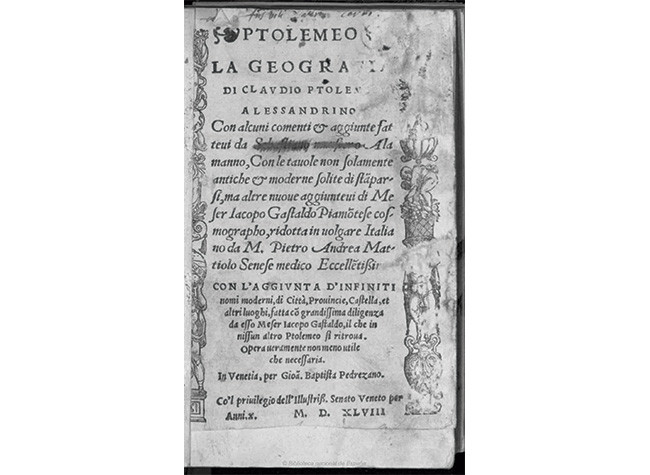 PTOLEMEO
LA GEOGRAFIA
DI CLAVDIO PTOLEM
ALESSANDRINO
Con alcuni comenti & aggiunte fat
teui da Sebastiano munstero Ala
manno, Con le tauole non solamente
antiche & moderne solite di stāpar-
si, ma altre nuoue aggiunteui di Me
ser Iacopo Gastaldo Piamōtese cos
mographo, ridotta in uolgare Italia
no da M. Pietro Andrea Mat-
tiolo Senese medico Eccellētiss
CON L'AGGIVNTA D'INFINITI
nomi moderni, di Città, Prouincie, Castella, et
altri luoghi, fatta cō grandissima diligenza
da esso Meser Iacopo Gastaldo, il che in
nissun altro Ptolemeo si ritroua.
Opera ueramente non meno utile
che necessaria.
In Venetia, per Gioā. Baptista Pedrezano.
Co'l priuilegio dell'Illustriss. Senato Veneto per
Anni.x. M. D. XLVIII
© Biblioteca Nacional de España